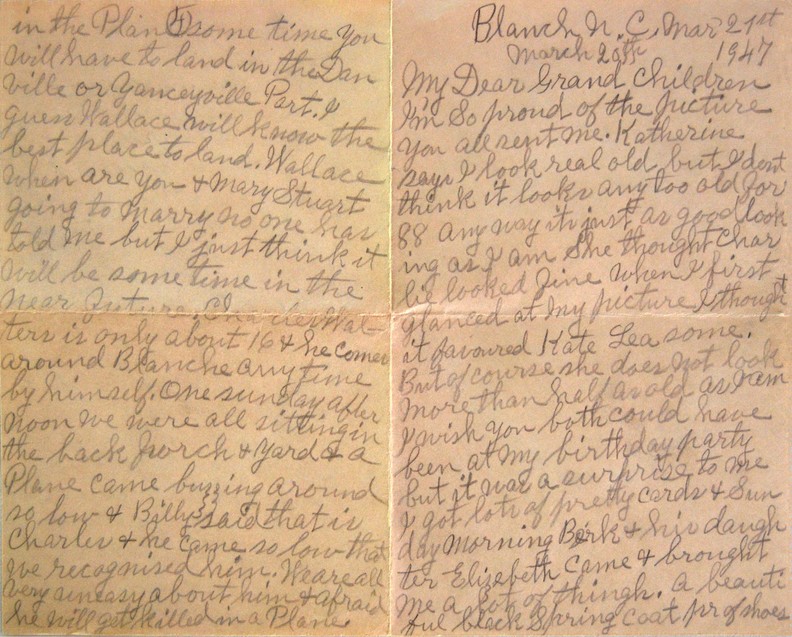 Blanch N. C. Mar 21st
March 20th 1947
My Dear Grand Children
I'm So proud of the picture
You all sent me. Katherine
says I look real old, but I dont
think it looks any too old for
88 any way its just as good look
ing as I am She thought Char
lie looked fine when I first
glanced at my picture I thought
it favoured Kate Lea some.
But of course she does not look
more than half as old as I am
I wish you both could have
been at my birthday party
but it was a surprise to me
I got lots of pretty cards & Sun
day Morning & his daugh
ter Elizabeth came & brought
me a lot of things. a beauti
ful black Spring coat pr of shoes
in the Plane some time you
will have to land in the Dan
ville or Yanceyville Port. I
guess Wallace will know the
best place to land. Wallace
when are you & Mary Stuart
going to marry no one has
told me but I just think it
will be some time in the
near future. Charles Wal-
ters is only about 16 & he comes
around Blanche any time
by himself. One sunday after
noon we were all sitting in
the back porch & yard & a
Plane came buzzing around
so low & Billy said that is
Charles & he came so low that
we recognised him. We are all
very uneasy about him & afraid
he will get killed in a Plane.